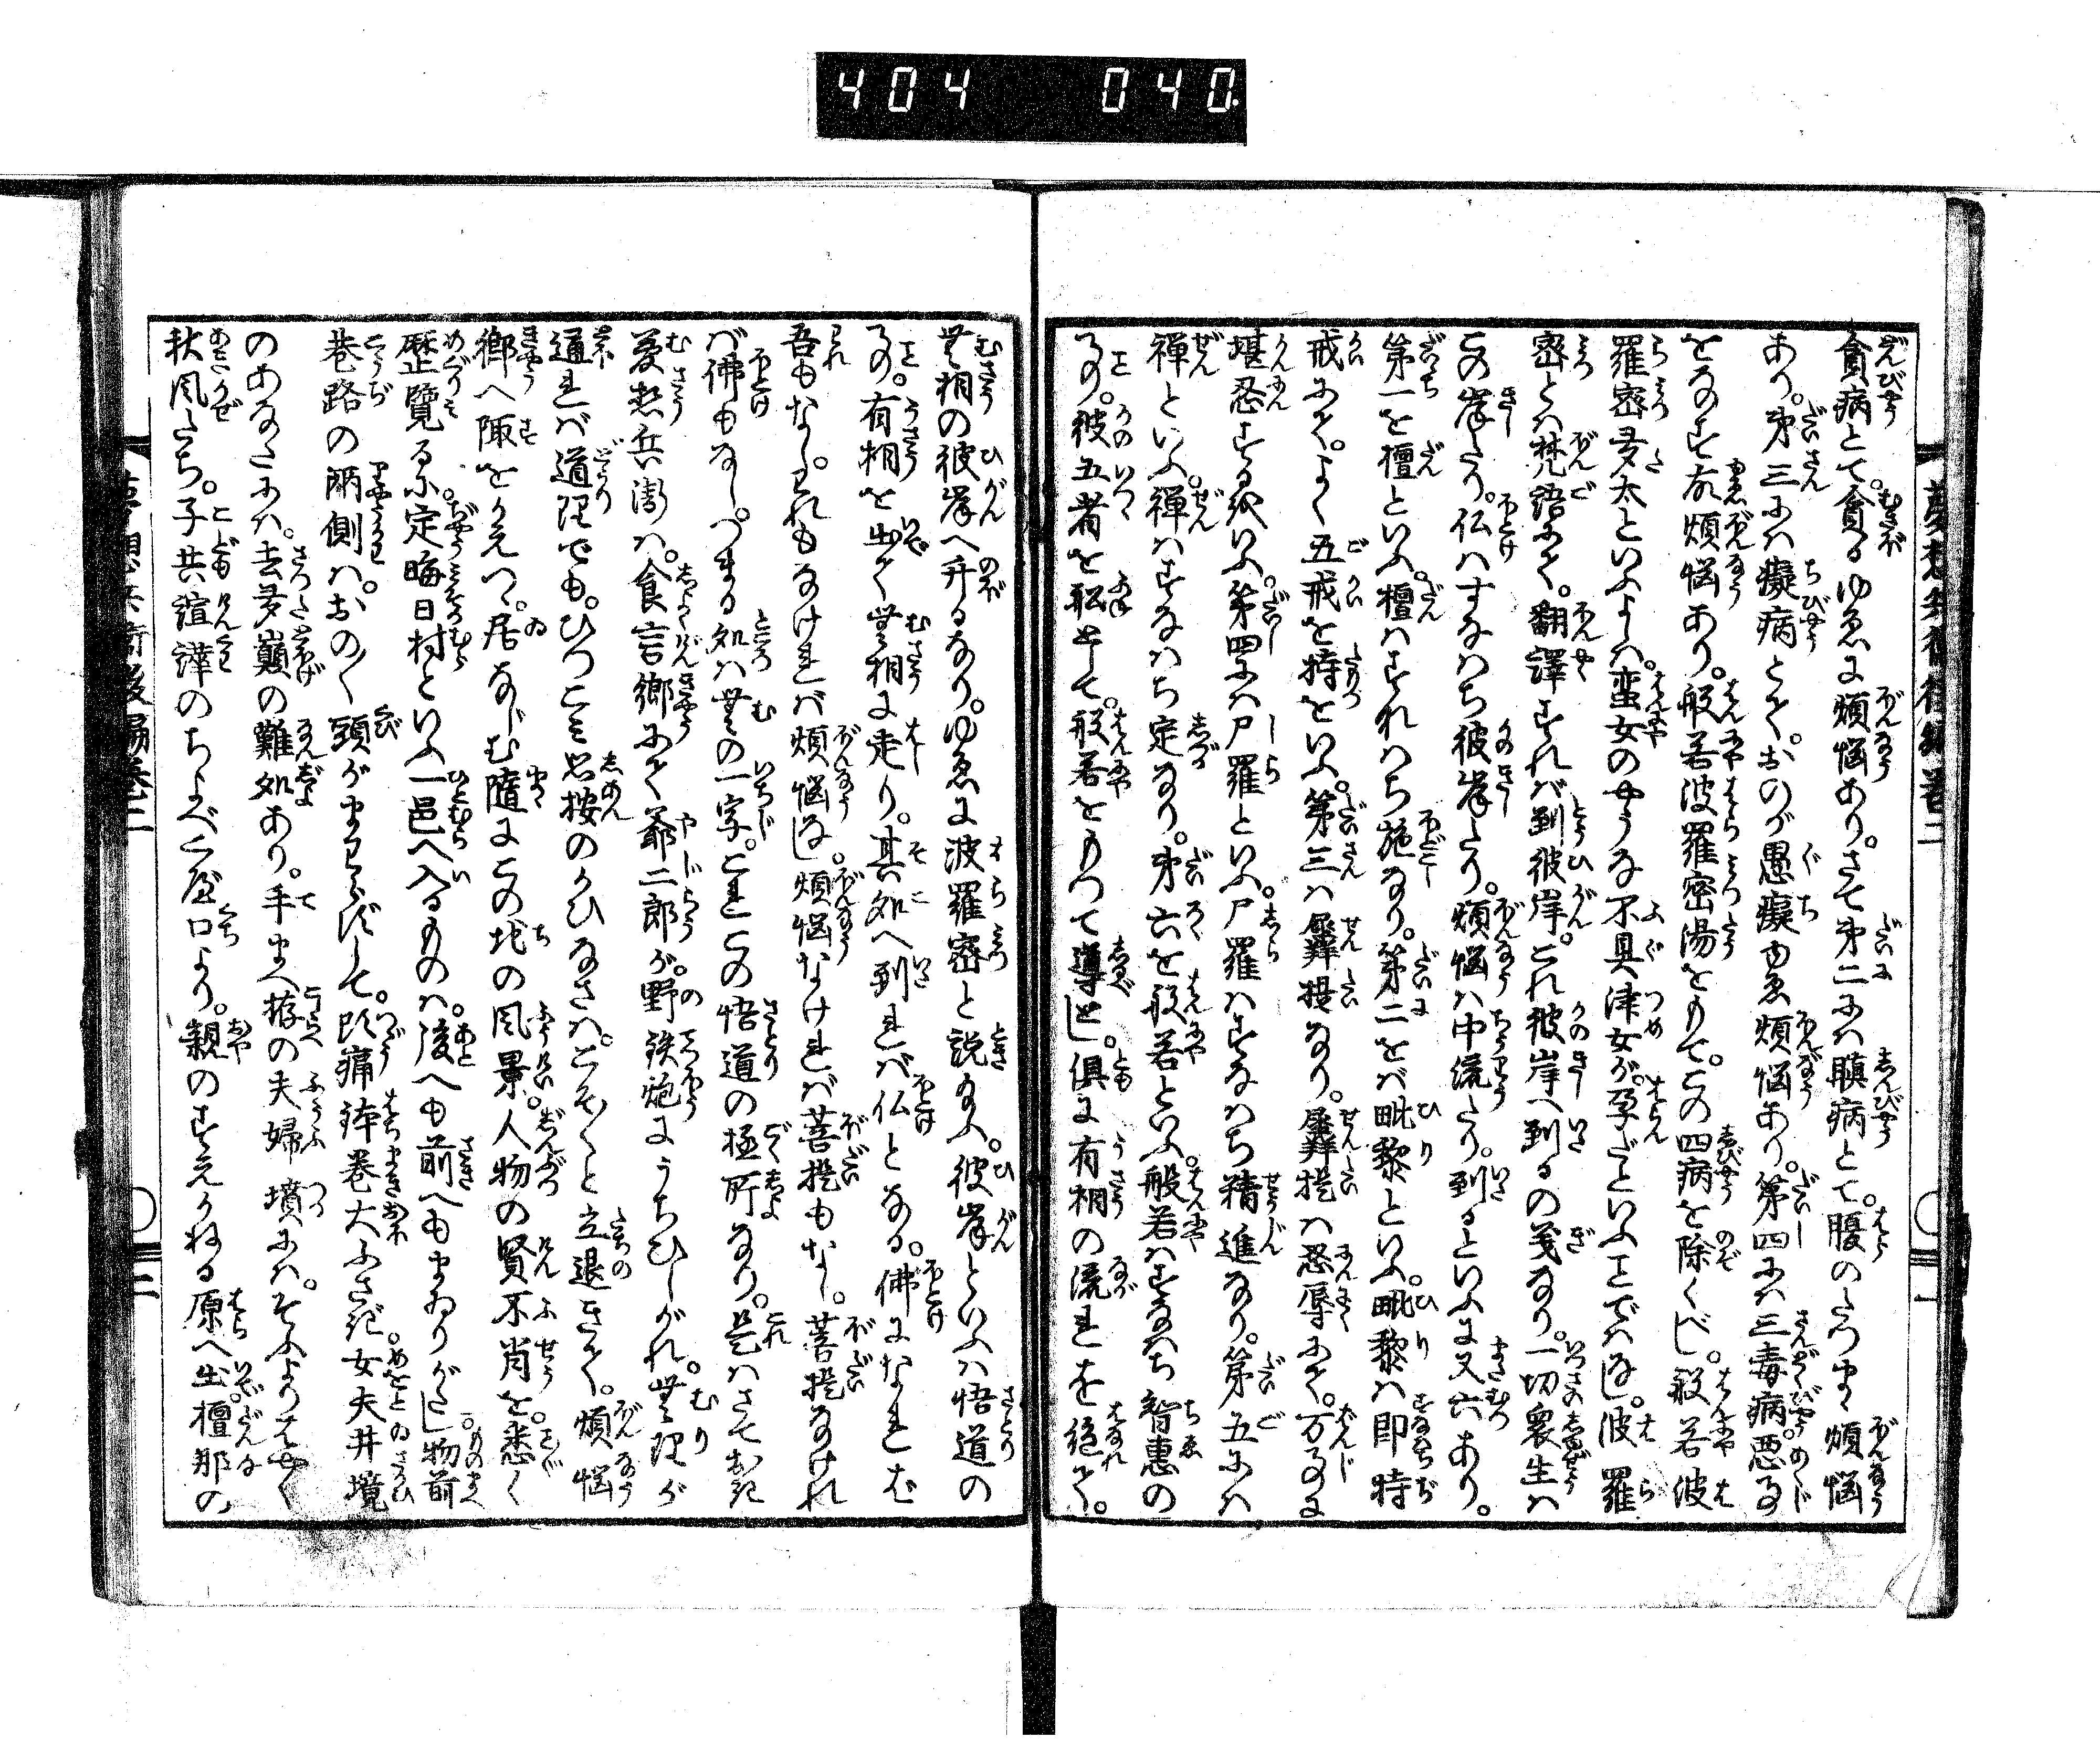 404 040
貪病とて。貪るゆゑに煩悩あり。さて第二には瞋病とて。腹のたつまゝ煩悩
あり。第三には癡病とて。おのが愚癡ゆゑ煩悩あり。第四には三毒病。悪事
をなすゆゑ煩悩あり。般若波羅密湯をもて。この四病を除くべし。般若波
羅密多太といふよりは。蛮女のやうな不具津女が。孕だといふことではなし。波羅
密とは梵語にて。翻譯すれば到彼岸。これ彼岸へ到るの義なり。一切衆生は
この岸なり。仏はすなはち彼岸なり。煩悩は中流なり。到るといふに又六あり。
第一を檀といふ。檀はすなはち施なり。第二をば毗黎といふ。毗黎は即持
戒にて。よく五戒を持をいふ。第三は羼提なり。羼提は忍辱にて。万事に
堪忍するをいふ。第四には尸羅といふ。尸羅はすなはち精進なり。第五には
禪といふ。禪はすなはち定なり。第六を般若といふ。般若はすなはち智惠の
事。彼五者を船として。般若をもつて導とし。俱に有相の流れを絶て。
無相の彼岸へ升るなり。ゆゑに波羅密と説給ふ。彼岸といふは悟道の
事。有相を出て無相に走り。其処へ到れば仏となる。佛になれば
吾もなし。われもなければ煩悩なし。煩悩なければ菩提もなし。菩提なけれ
ば佛もなし。つまる処は無の一字。これこの悟道の極所なり。是はさておき
夢想兵衛は。食言郷にて爺二郎が。野鉄炮にうちひしがれ。無理が
通れば道理でも。ひつこみ思按のかひなさは。こそ〱と立退きて。煩悩
郷へ陬をかえつ。居なじむ隨にこの地の風景。人物の賢不肖を。悉く
歴覽るに。定晦日村といふ一邑へ入るものは。後へも前へもまゐりがたし。物前
巷路の兩側は。おの〱頭がまわらずして。頭痛鉢巻大ふさぎ。女夫井境
のあなたには。去夛巓の難処あり。手まへ拵の夫婦墳には。そふよりはやく
秋風たち。子共諠譁のちよべこ屋口より。親のすえかねる原へ出。檀那の
夢想兵衛後編巻二 二